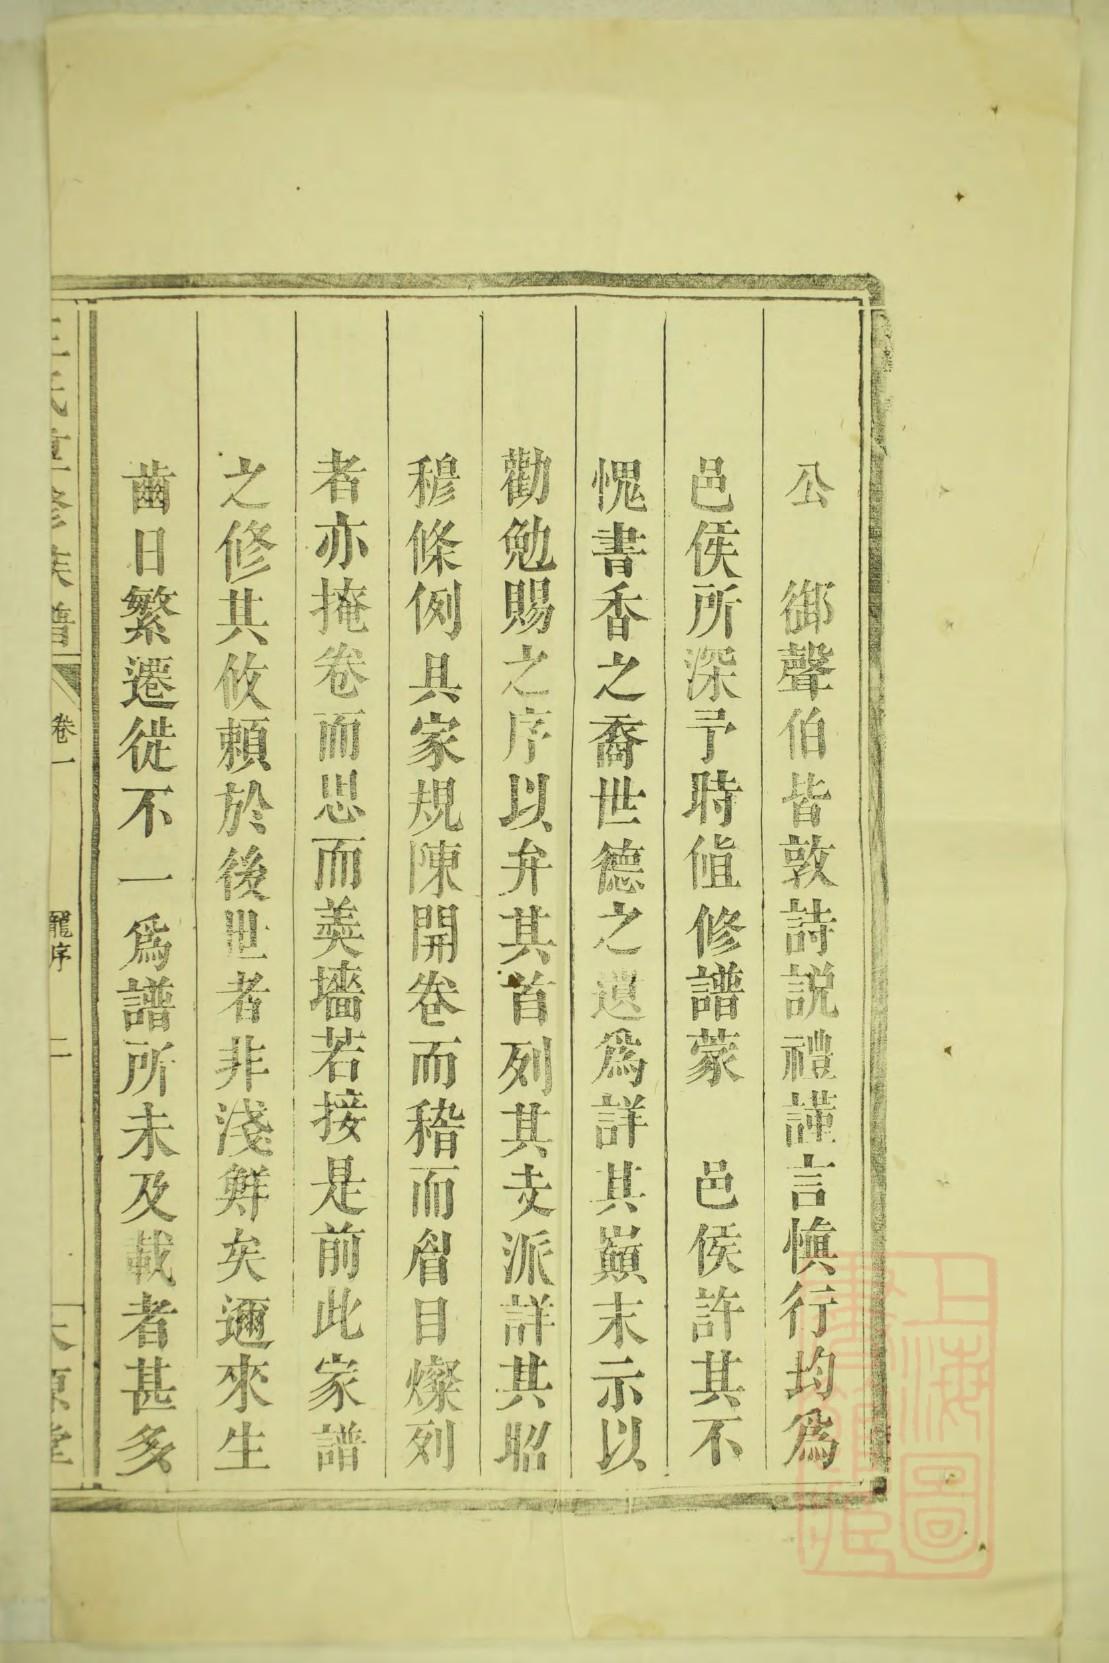 公　御聲伯皆敦詩説禮謹言愼行均爲
邑侯所深予時值修譜蒙　邑侯許其不
愧書香之裔世德之遺爲詳其巔末示以
勸勉賜之序以弁其首列其支派詳其昭
穆條例具家規陳開卷而稽而眉目燦列
者亦掩卷而思而羮墻若接是前此家譜
之修其攸頼於後世者非淺鮮矣邇來生
齒日繁遷徙不一爲譜所未及載者甚多
王氏重修族譜　卷一　龍序　二　太原堂
上海圖書館藏